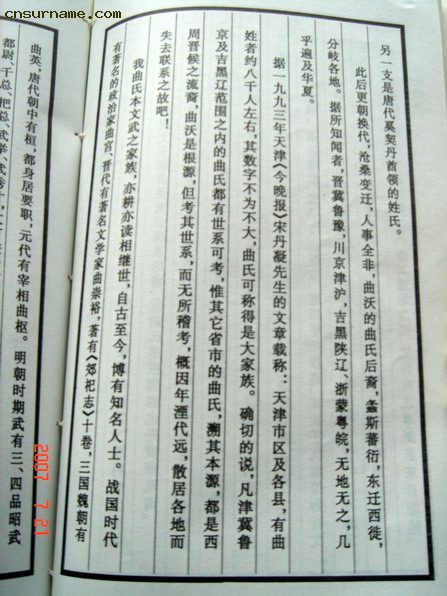 cnsurname.com
另一支是唐代奚契丹酋领的姓氏。
此后更朝换代，沧桑变迁，人事全非，曲沃的曲氏后裔，螽斯蕃衍，东迁西徙，
分岐各地。据所知闻者，晋冀鲁豫，川京津沪，吉黑陕辽、浙蒙粤皖，无地无之，几
乎遍及华夏。
据一九九三年天津《今晚报》宋丹凝先生的文章载称：天津市区及各县，有曲
姓者约八千人左右，其数字不为不大，曲氏可称得是大家族。确切的说，凡津冀鲁
京及吉黑辽范围之内的曲氏都有世系可考，惟其它省市的曲氏，溯其本源，都是西
周晋候之流裔，曲沃是根源，但考其世系，而无所稽考，概因年湮代远，散居各地而
失去联系之故吧！
我曲氏本文武之家族，亦耕亦读相继世，自古至今，博有知名人士。战国时代
有著名的政治家曲宫，晋代有著名文学家曲崇裕，著有《郊祀志》十卷，三国魏朝有
曲英、唐代朝中有桓，都身居要职，元代有宰相曲枢。明朝时期武有三、四品昭武
都尉、千总、把总、武举、武秀
2007 7 21